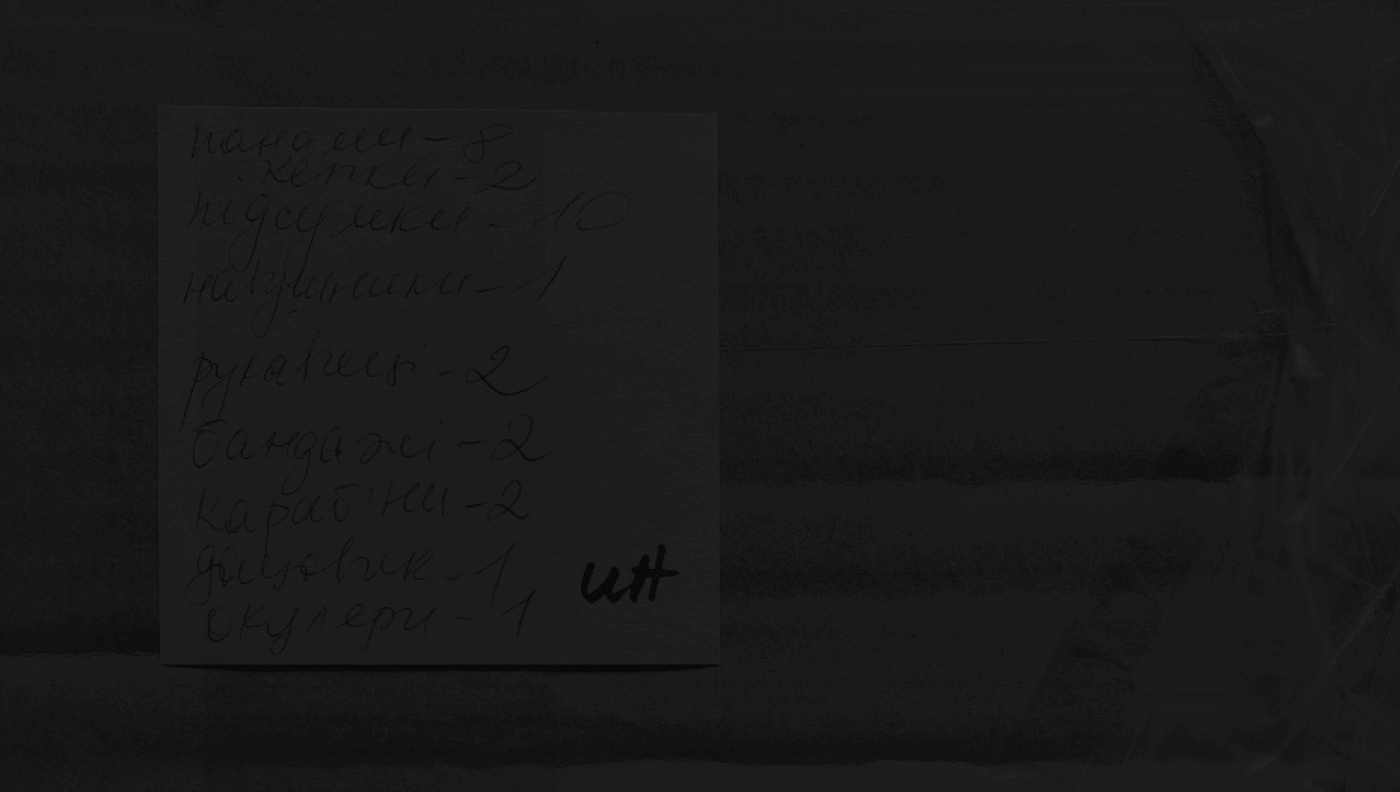 панами - 8
кепки - 2
підсумки - 10
навушники - 1
рукавиці - 2
бандажі - 2
караб'ни - 2
дощовик - 1
окуляри - 1
ИН